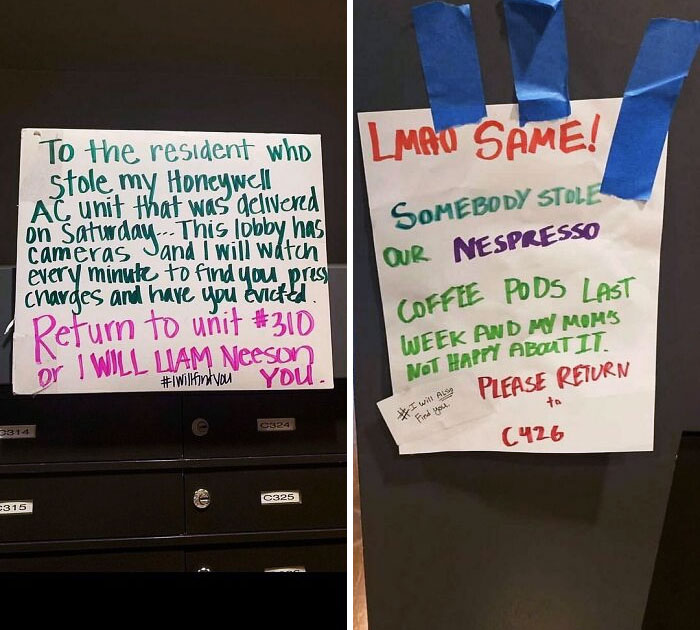 To the resident who
stole my Honeywell
AC unit that was delivered
on Saturday... This lobby has
cameras and I will watch
every minute to find you press
charges and have you evicted.
Return to unit #310
or I WILL LIAM Neeson
#IWillFindYou YOU.
C314
C324
C315
C325
LMAO SAME!
SOMEBODY STOLE
OUR NESPRESSO
COFFEE PODS LAST
WEEK AND MY MOM'S
NOT HAPPY ABOUT IT.
PLEASE RETURN
to
C426
#I will Also
Find you.